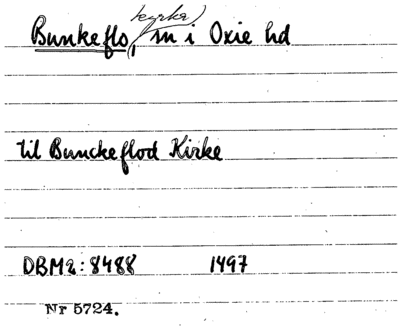 kyrka)
Bunkeflo, sn i Oxie hd
til Bunckeflod Kirke
DBM2:8488 1497
Nr 5724.